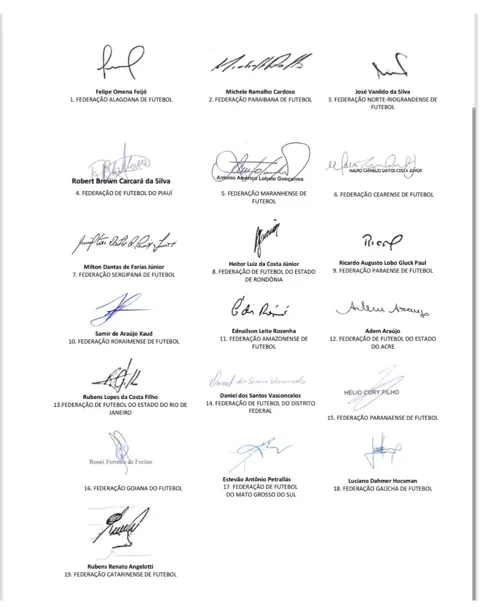 Felipe Omena Feijó
1. FEDERAÇÃO ALAGOANA DE FUTEBOL
Michele Ramalho Cardoso
2. FEDERAÇÃO PARAIBANA DE FUTEBOL
José Vanildo da Silva
3. FEDERAÇÃO NORTE-RIOGRANDENSE DE
FUTEBOL
Robert Brown Carcará da Silva
4. FEDERAÇÃO DE FUTEBOL DO PIAUÍ
Antonio Américo Lobato Gonçalves
5. FEDERAÇÃO MARANHENSE DE
FUTEBOL
MAURO CARMELIO SANTOS COSTA JUNIOR
6. FEDERAÇÃO CEARENSE DE FUTEBOL
Milton Dantas de Farias Júnior
7. FEDERAÇÃO SERGIPANA DE FUTEBOL
Heitor Luiz da Costa Júnior
8. FEDERAÇÃO DE FUTEBOL DO ESTADO
DE RONDÔNIA
Ricardo Augusto Lobo Gluck Paul
9. FEDERAÇÃO PARAENSE DE FUTEBOL
Samir de Araújo Xaud
10. FEDERAÇÃO RORAIMENSE DE FUTEBOL
Ednailson Leite Rozenha
11. FEDERAÇÃO AMAZONENSE DE
FUTEBOL
Adem Araújo
12. FEDERAÇÃO DE FUTEBOL DO ESTADO
DO ACRE
Rubens Lopes da Costa Filho
13.FEDERAÇÃO DE FUTEBOL DO ESTADO DO RIO DE
JANEIRO
Daniel dos Santos Vasconcelos
Daniel dos Santos Vasconcelos
14. FEDERAÇÃO DE FUTEBOL DO DISTRITO
FEDERAL
HÉLIO CURY FILHO
15. FEDERAÇÃO PARANAENSE DE FUTEBOL
Ronei Ferreira de Freitas
16. FEDERAÇÃO GOIANA DO FUTEBOL
Estevão Antônio Petrallás
17. FEDERAÇÃO DE FUTEBOL
DO MATO GROSSO DO SUL
Luciano Dahmer Hocsman
18. FEDERAÇÃO GAÚCHA DE FUTEBOL
Rubens Renato Angelotti
19. FEDERAÇÃO CATARINENSE DE FUTEBOL